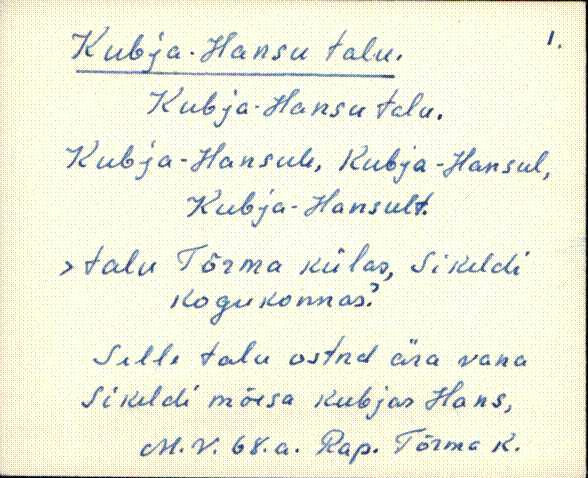 Kubja-Hansu talu. 1.
Kubja-Hansu talu.
Kubja-Hansule, Kubja-Hansul,
Kubja-Hansult.
> talu Tõrma külas, Sikeldi
kogukonnas?
Selle talu ostnd ära vana
Sikeldi mõisa kubjas Hans,
M. V. 68. a. Rap. Tõrma k.